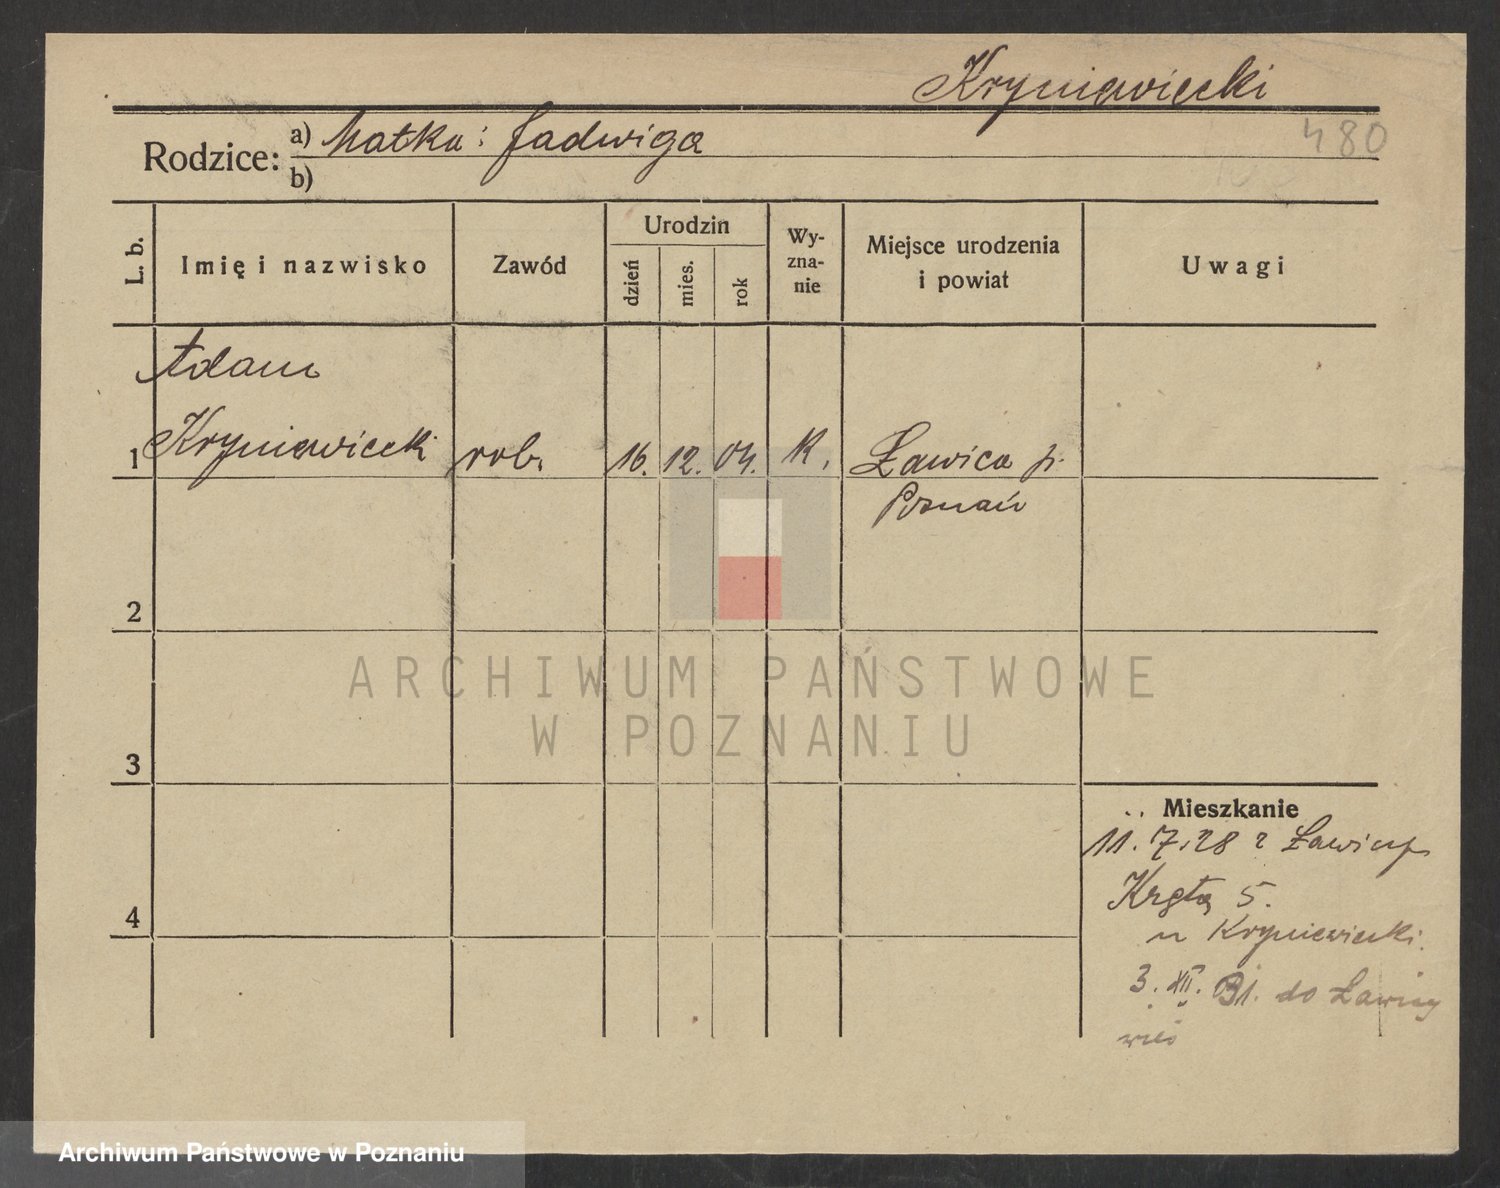 Kryniewiecki
480
Rodzice: a) Matka: Jadwiga
b)
L. b.
Imię i nazwisko
Zawód
Urodzin
dzień
mies.
rok
Wy-
zna-
nie
Miejsce urodzenia
i powiat
Uwagi
Adam
1 Kryniewiecki rob. 16. 12. 04. K. Ławica p.
Poznań
2
3
4
Mieszkanie
11. 7. 28 z Ławicy
Kręta 5.
u Kryniewiecki.
3. XII. 31. do Ławicy
wieś
ARCHIWUM PAŃSTWOWE
W POZNANIU
Archiwum Państwowe w Poznaniu